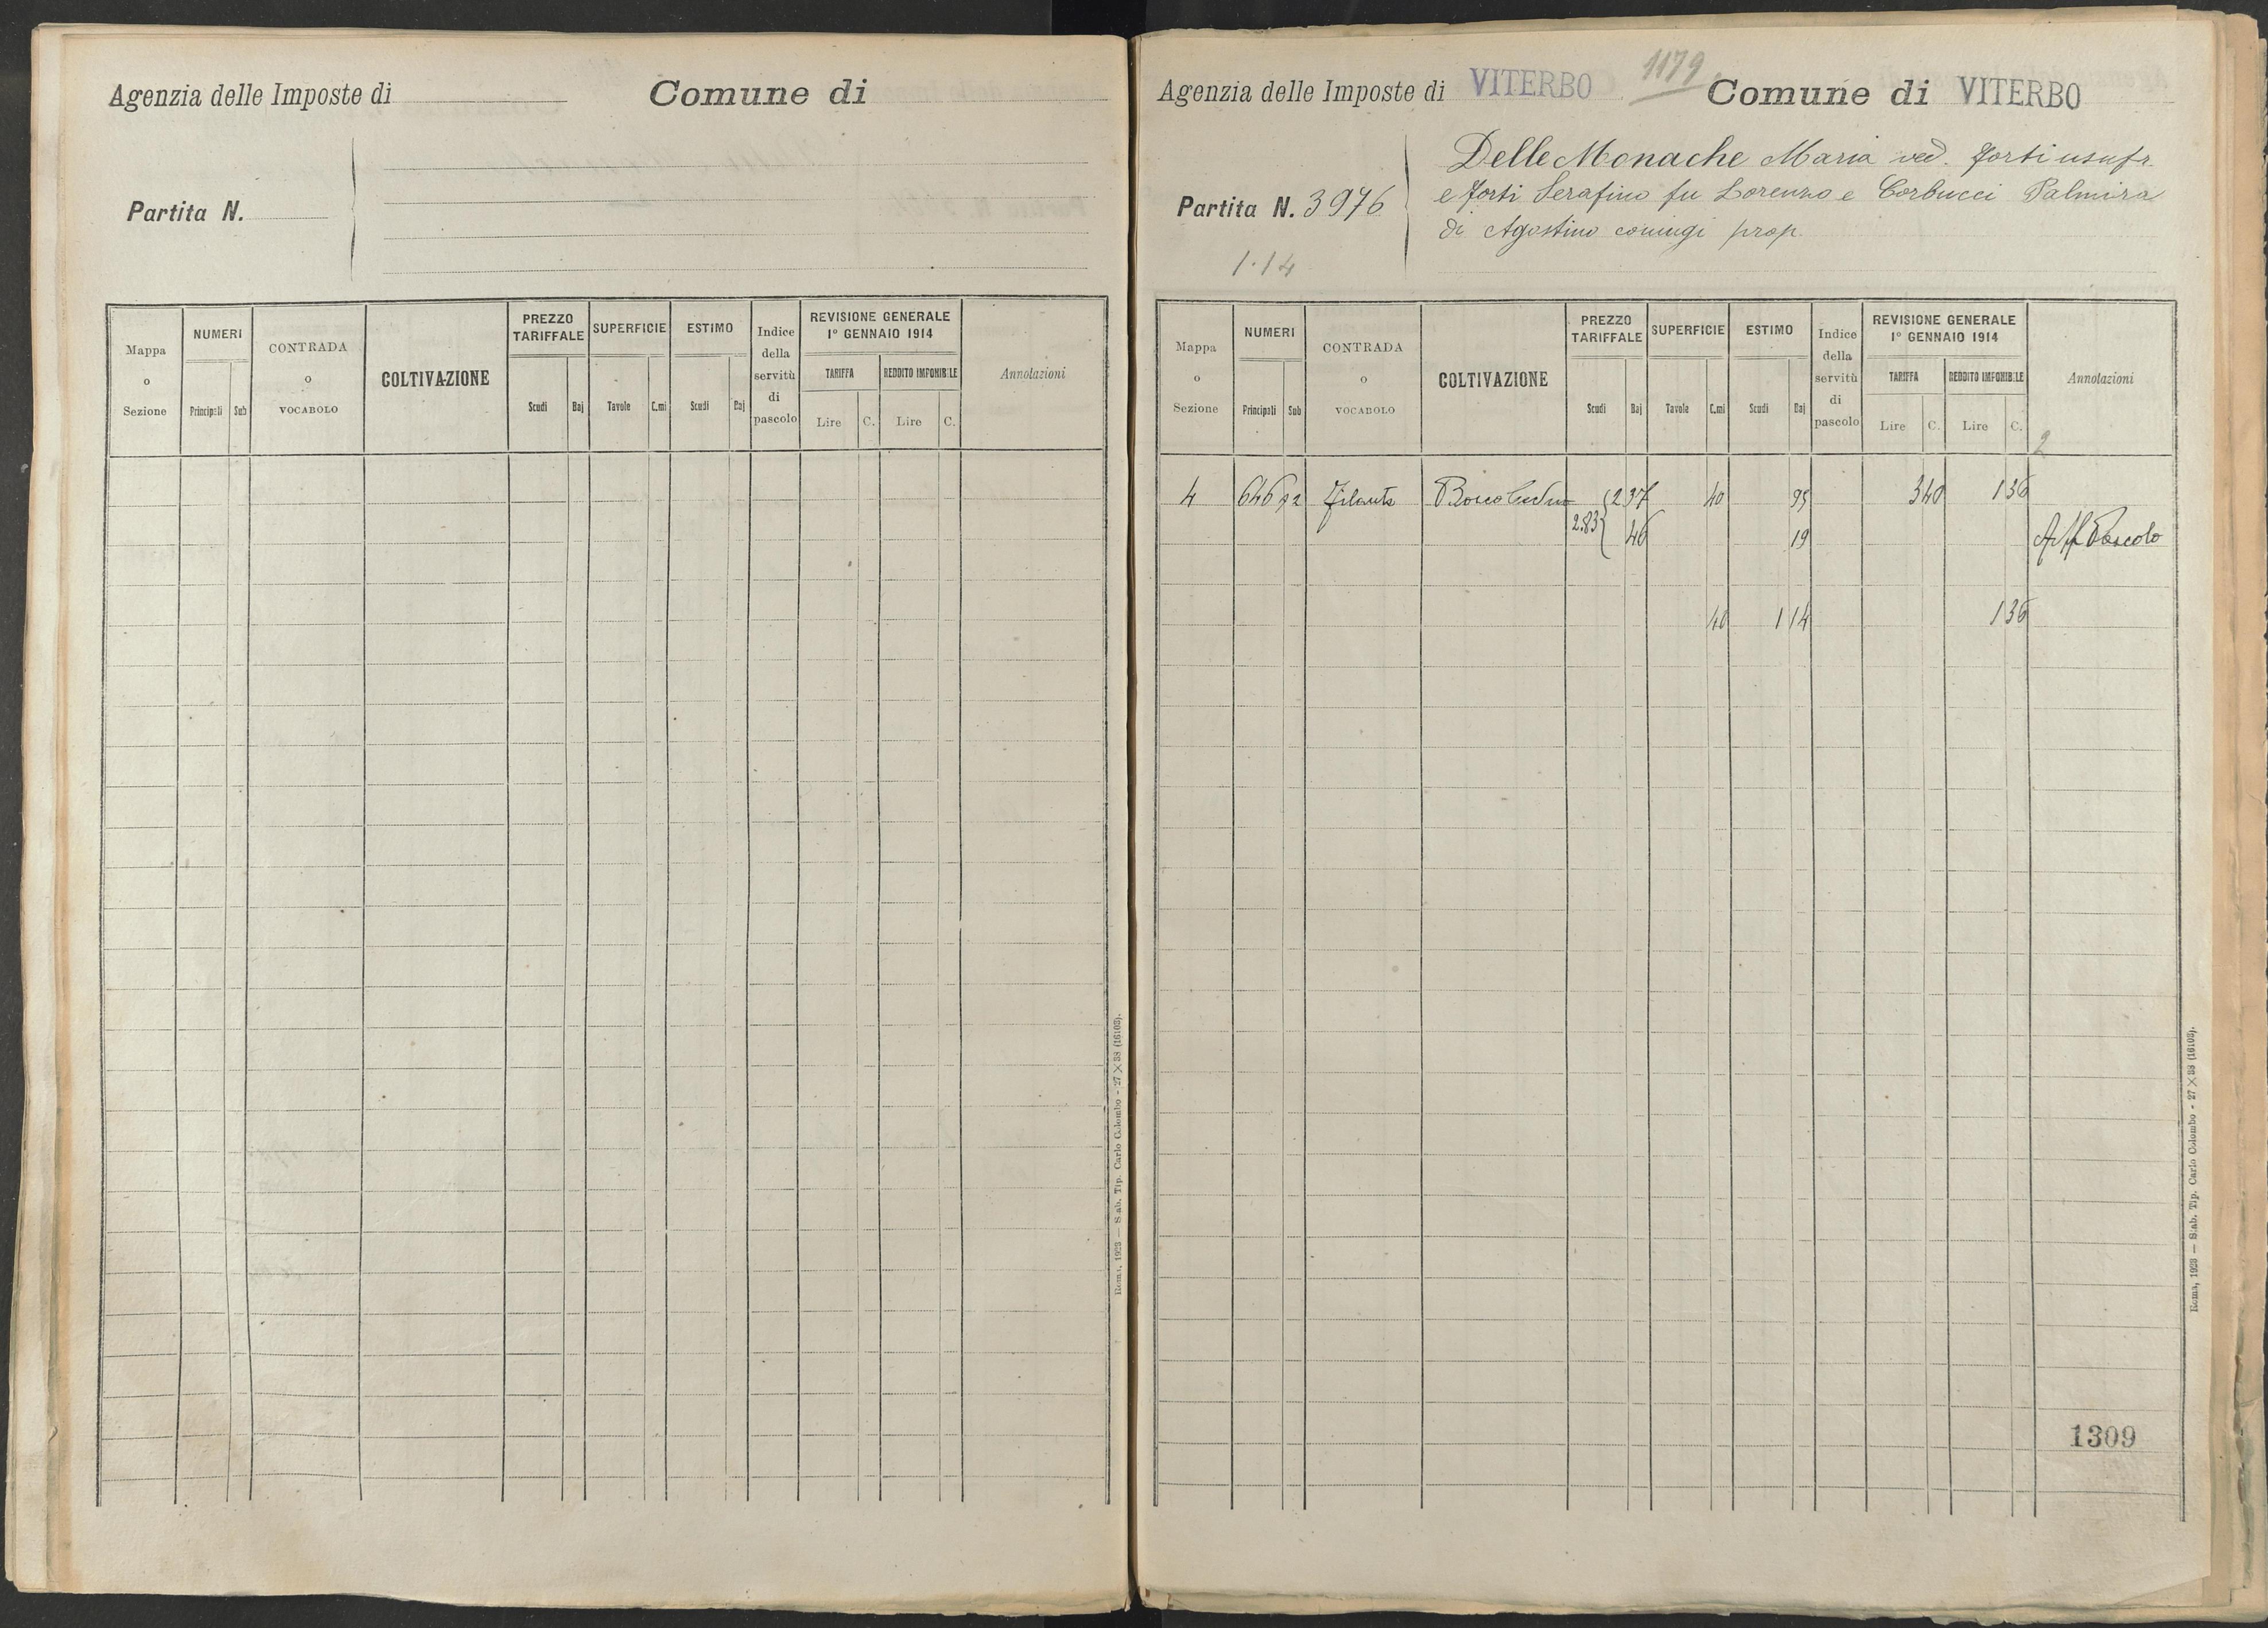 Agenzia delle Imposte di Comune di
Partita N.
Mappa o Sezione NUMERI Principali Sub CONTRADA o VOCABOLO COLTIVAZIONE PREZZO TARIFFALE Scudi Baj SUPERFICIE Tavole C.mi ESTIMO Scudi Baj Indice della servitù di pascolo REVISIONE GENERALE 1° GENNAIO 1914 TARIFFA Lire C. REDDITO IMPONIBILE Lire C. Annotazioni
Roma, 1923 — Stab. Tip. Carlo Colombo - 27 × 38 (16103).
Agenzia delle Imposte di VITERBO 1179 Comune di VITERBO
Delle Monache Maria ved. Forti usufr.
Partita N. 3976 e Forti Serafino fu Lorenzo e Corbucci Palmira
di Agostino coniugi prop.
1.14
Mappa o Sezione NUMERI Principali Sub CONTRADA o VOCABOLO COLTIVAZIONE PREZZO TARIFFALE Scudi Baj SUPERFICIE Tavole C.mi ESTIMO Scudi Baj Indice della servitù di pascolo REVISIONE GENERALE 1° GENNAIO 1914 TARIFFA Lire C. REDDITO IMPONIBILE Lire C. Annotazioni
2
4 646 92 Bosco Ceduo 2 37 40 95 3 40 1 36
2.83 46 19 Aff Pascolo
40 1 14 1 36
1309
Roma, 1923 — Stab. Tip. Carlo Colombo - 27 × 38 (16103).